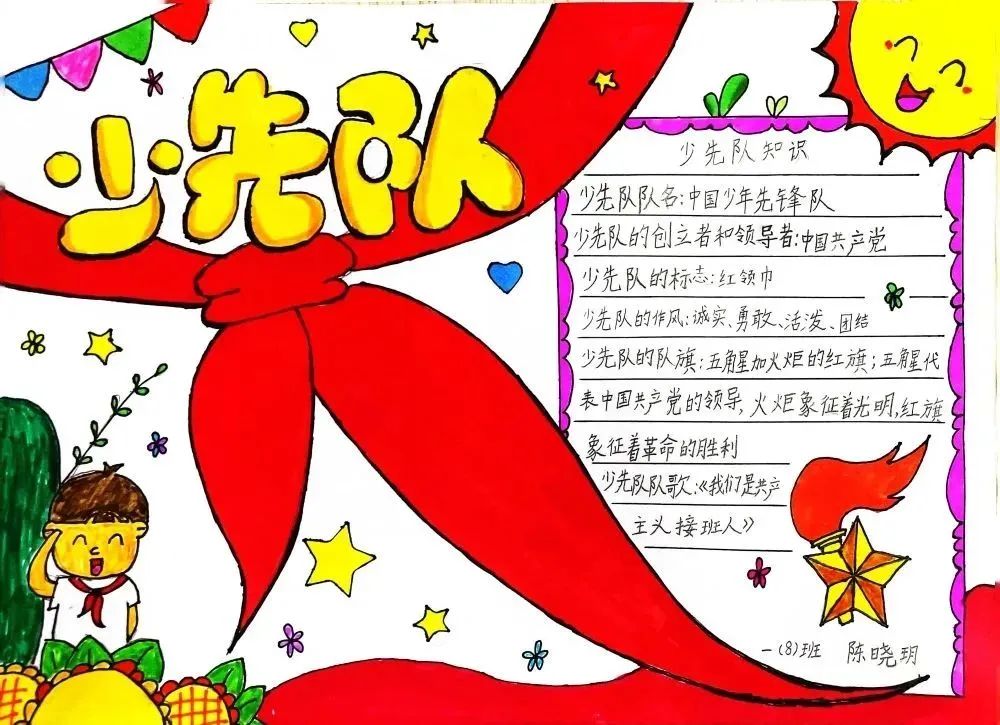 少先队
少先队知识
少先队队名:中国少年先锋队
少先队的创立者和领导者:中国共产党
少先队的标志:红领巾
少先队的作风:诚实、勇敢、活泼、团结
少先队的队旗:五角星加火炬的红旗;五角星代
表中国共产党的领导,火炬象征着光明,红旗
象征着革命的胜利
少先队队歌:《我们是共产
主义接班人》
一(8)班 陈晓玥